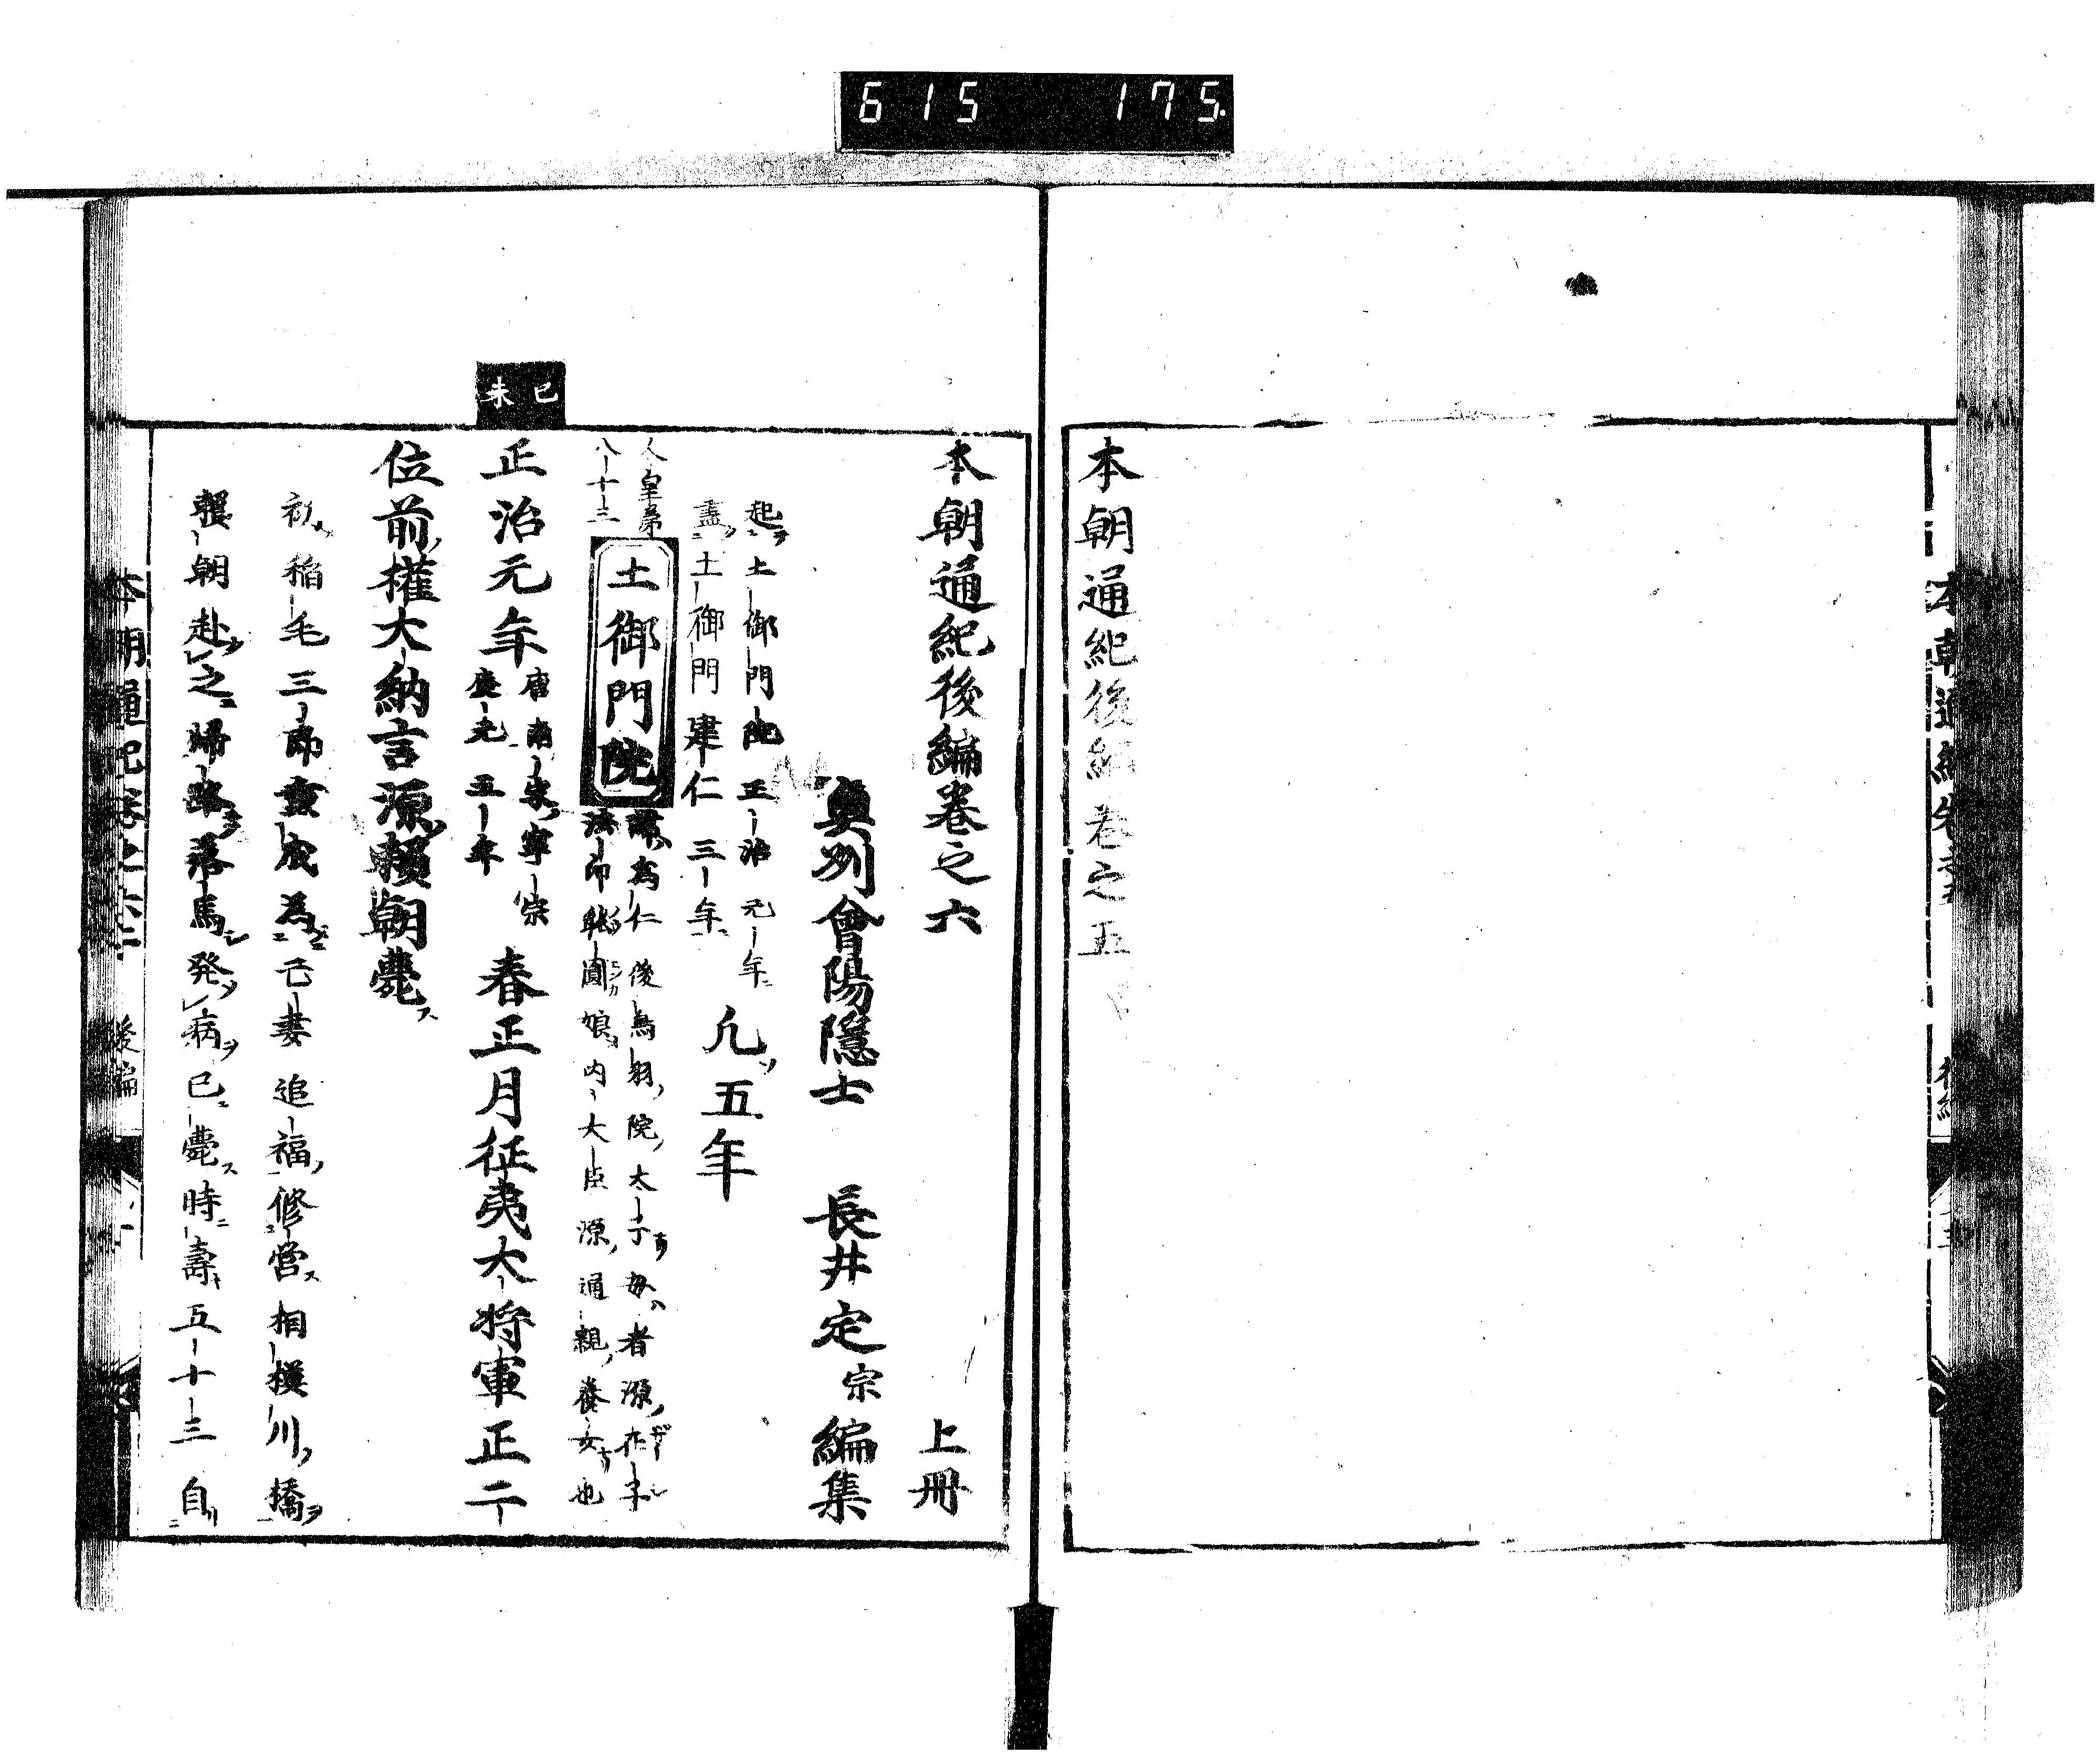 615 175.
本朝通紀後編巻之五
本朝通紀後編巻之六 上冊
奥州會陽隱士 長井定宗編集
起土御門院正治元年
盡土御門建仁三年
凡五年
人皇第
八十三
土御門院
諱為仁後鳥羽院太子母者源在子
法印能圓娘内大臣源通親養女也
己未
正治元年
唐南宋寧宗
慶元五年
春正月征夷大将軍正二
位前權大納言源頼朝薨ス
初稲毛三郎重成為己妻追福修営ス相模川橋ヲ
頼朝赴之歸路落馬発病ヲ已ニ薨ス時ニ壽五十三自